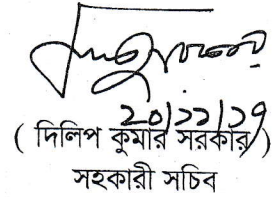 ২০/১১/১৭
( দিলিপ কুমার সরকার )
সহকারী সচিব